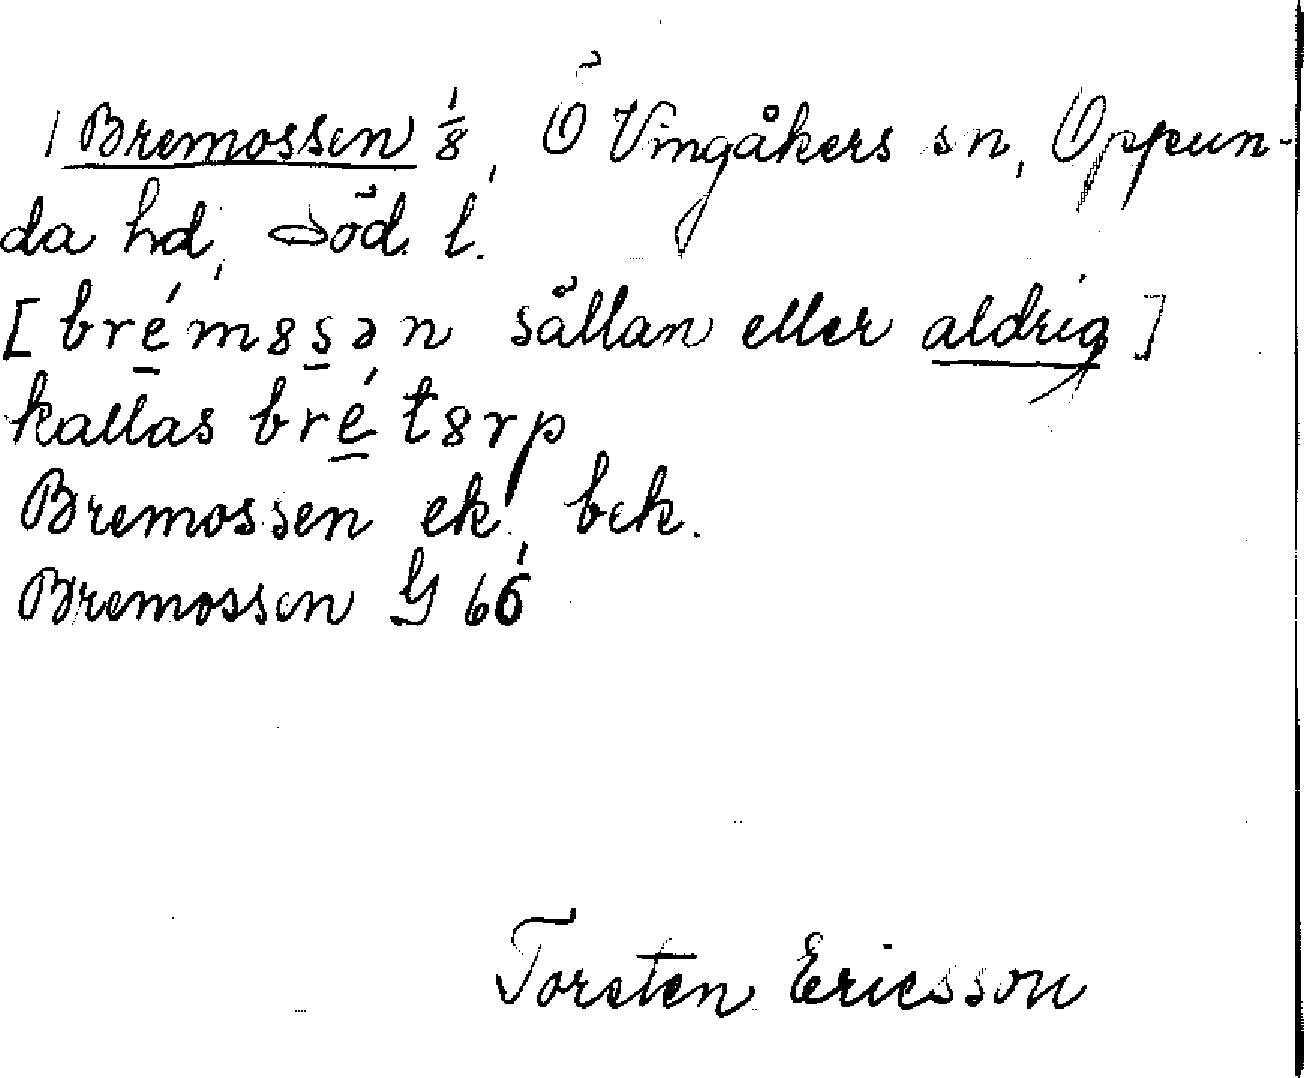 1 Bremossen 1/8, Ö Vingåkers sn, Oppun-
da hd, Söd. l.
[brém8sən sällan eller aldrig]
kallas bré t8rp
Bremossen ek. bek.
Bremossen G 66
Torsten Ericsson